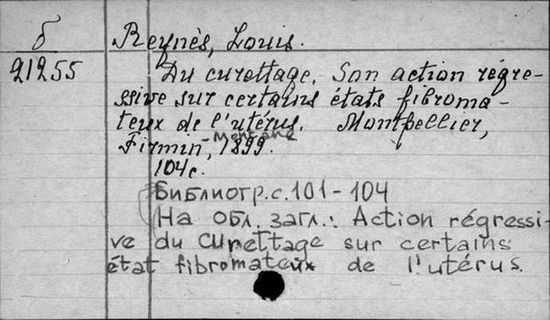 б Reynès, Louis.
21255 Du curettage. Son action régre-
ssive sur certains états fibroma-
teux de l'utérus. Montpellier,
Firmin-Montane, 1899.
104c.
Библиогр.с.101-104
На обл. загл.: Action régressi-
ve du curettage sur certains
état fibromateux de l'utérus.